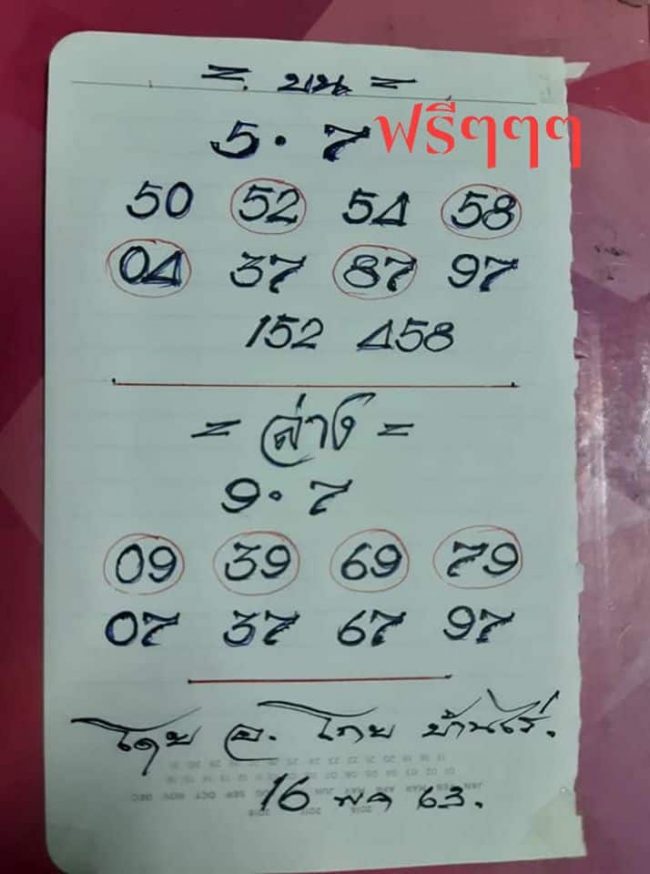 = บน =
5 . 7 ฟรีๆๆๆ
50 52 54 58
04 37 87 97
152 458
= ล่าง =
9 . 7
09 39 69 79
07 37 67 97
โดย อ. โภย บ้านไร่.
16 พค 63.